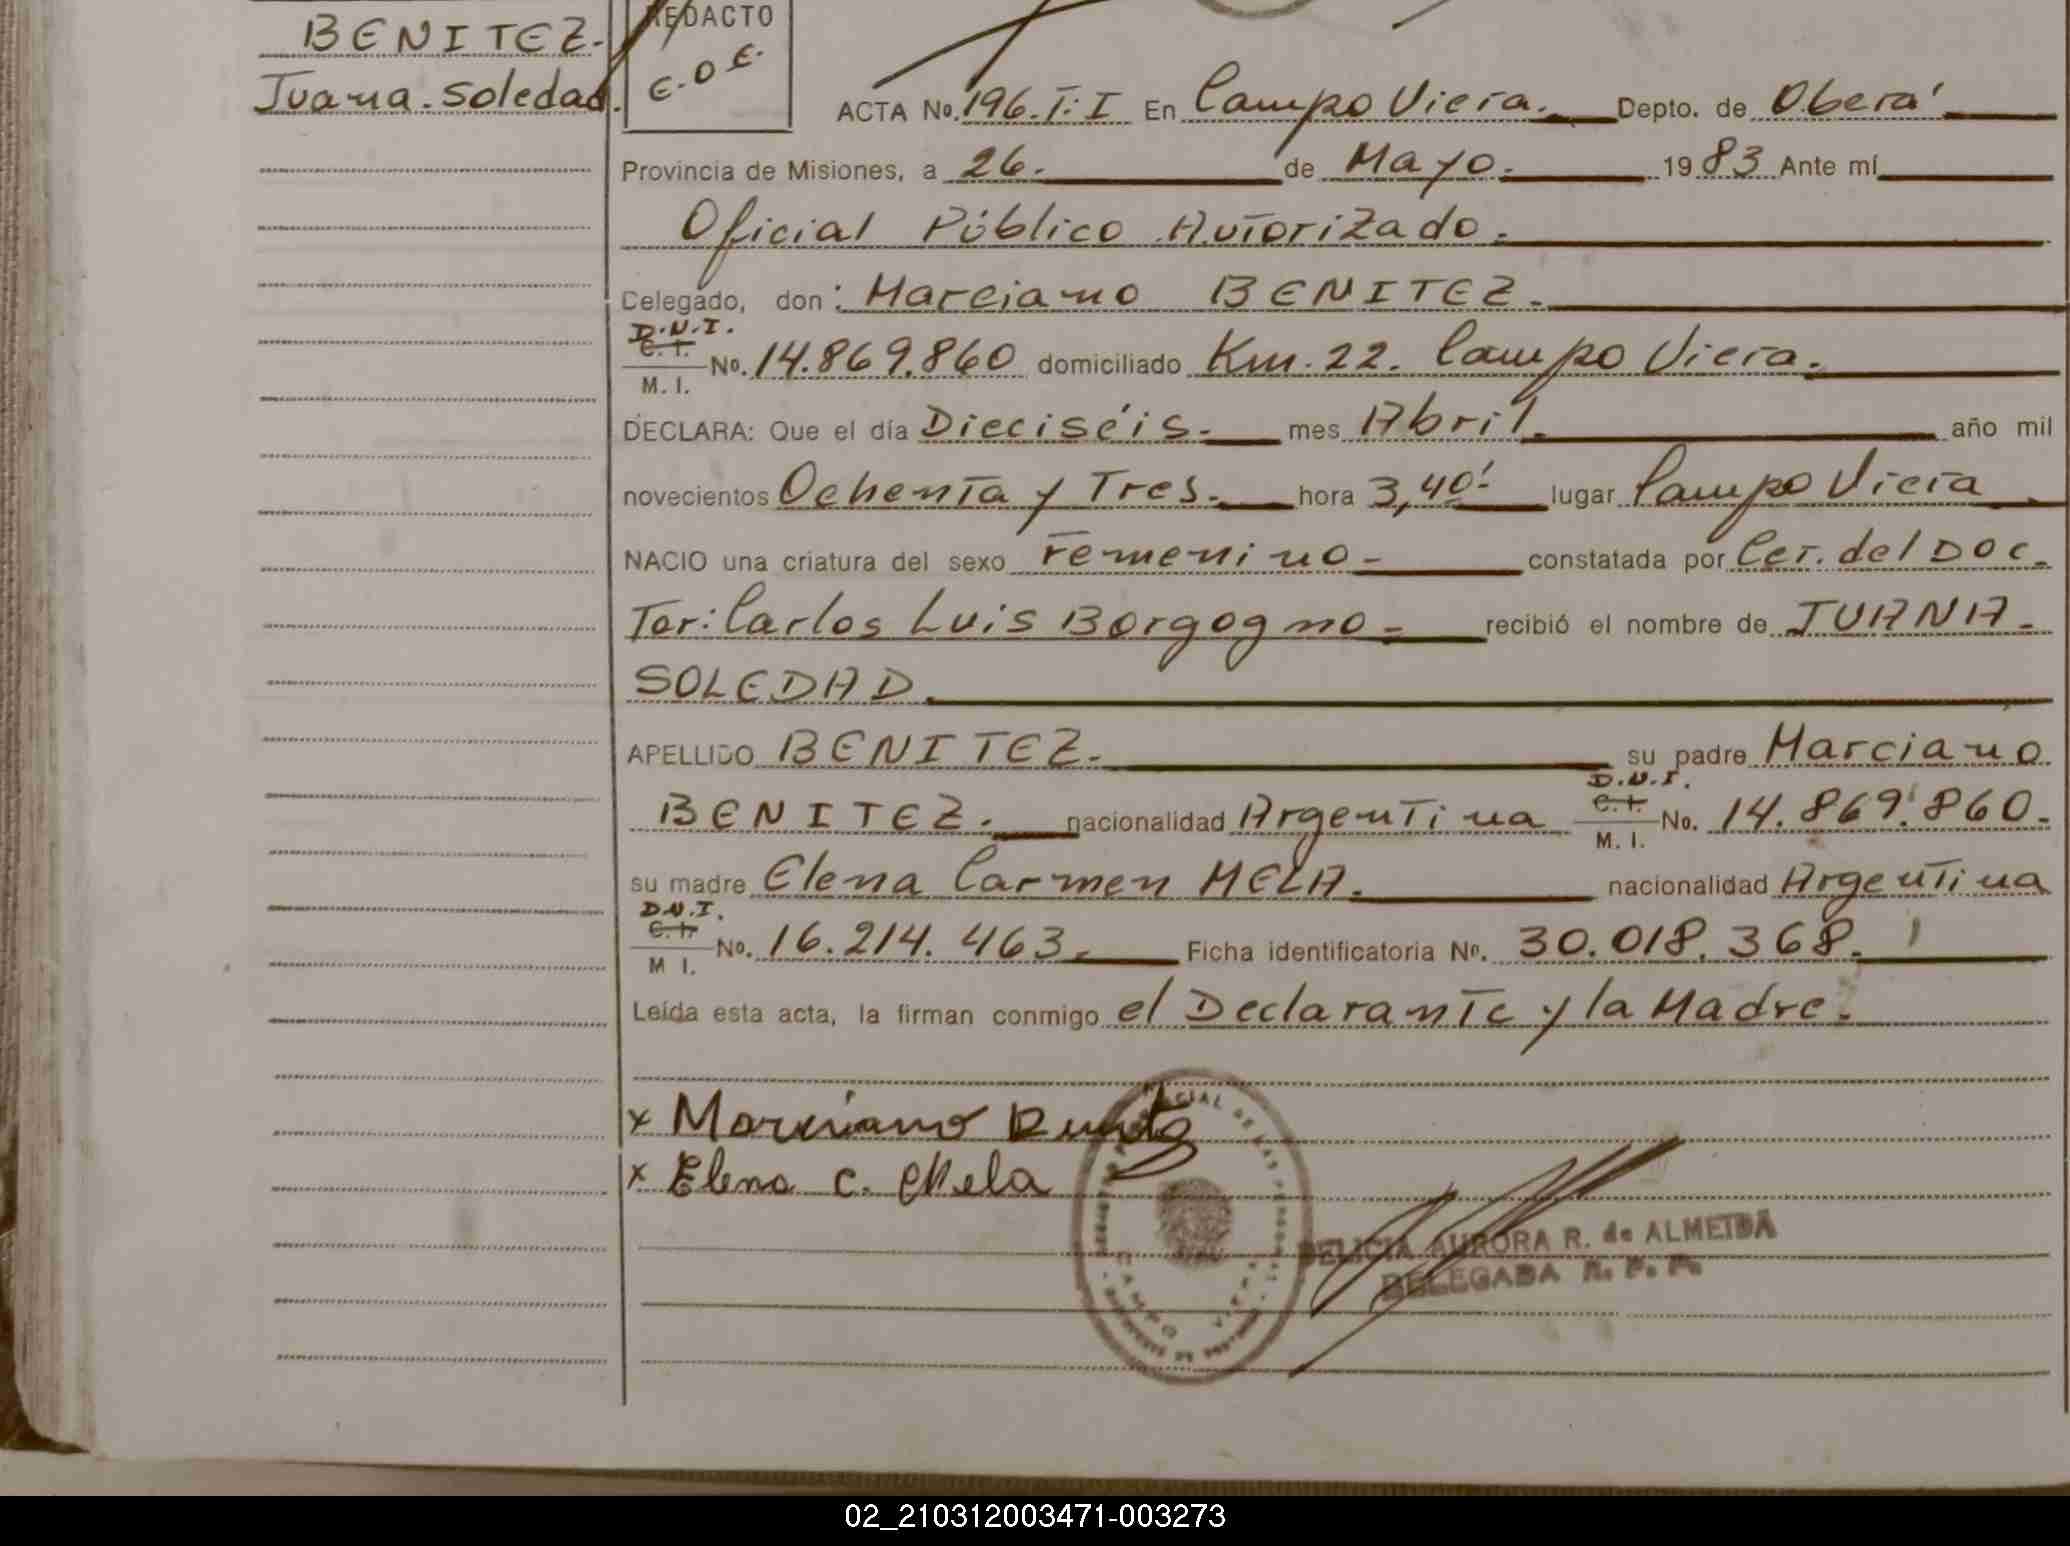 BENITEZ.
Juana. Soledad.
REDACTO
E.O.E.
ACTA No. 196. T: I En Campo Viera. Depto. de Oberá
Provincia de Misiones, a 26. de Mayo. 1983 Ante mí
Oficial Público Autorizado.
Celegado, don: Marciano BENITEZ.
D.N.I.
C. I.
M. I.
No. 14.869.860 domiciliado Km. 22. Campo Viera.
DECLARA: Que el día Dieciséis. mes Abril. año mil
novecientos Ochenta y Tres. hora 3,40' lugar Campo Viera
NACIO una criatura del sexo Femenino- constatada por Cer. del Doc.
Tor: Carlos Luis Borgogno- recibió el nombre de JUANA.
SOLEDAD.
APELLIDO BENITEZ. su padre Marciano
BENITEZ. nacionalidad Argentina D.N.I. C. I. M. I. No. 14.869.860.
su madre Elena Carmen MELA. nacionalidad Argentina
D.N.I.
C. I.
M I.
No. 16.214.463. Ficha identificatoria No. 30.018.368.
Leída esta acta, la firman conmigo el Declarante y la Madre.
x Marciano
x Elena C. Mela
CAMPO VIERA
DELICIA AURORA R. de ALMEIDA
DELEGADA R. P. P.
02_210312003471-003273